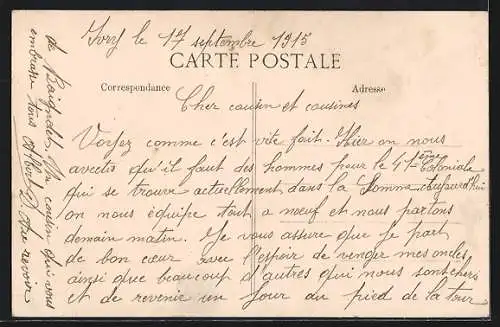 Ivry le 17 septembre 1915
CARTE POSTALE
Correspondance
Adresse
Cher cousin et cousines
Voyez comme c'est vite fait. Hier on nous
avertis qu'il faut des hommes pour le 41ème Coloniale
qui se trouve actuellement dans la Somme. Aujourd'hui
on nous équipe tout a noeuf et nous partons
demain matin. Je vous assure que je part
de bon cœur avec l'espoir de venger mes oncles
ainsi que beaucoup d'autres qui nous sont chers
et de revenir un jour au pied de la tour
de Baignolet. Un cousin qui vous
embrasse tous Albert Au revoir